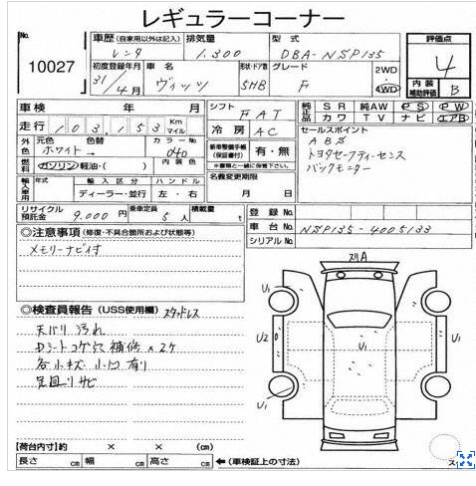 レギュラーコーナー
No. 10027
車歴(自家用以外は記入) レンタ
排気量 1,300
型式 DBA-NSP135
評価点 4
初度登録年月 31/4月
車名 ヴィッツ
形状・ドア数 5HB
グレード F
2WD 4WD
内装補助評価 B
車検 年 月
シフト FAT
純正品 SR 純AW PS PW
カワ TV ナビ エアB
走行 103,153 Km マイル
冷房 AC
セールスポイント
ABS
トヨタセーフティーセンス
バックモニター
外色 元色 ホワイト 色替 カラーNo. 040
燃料 ガソリン・軽油・( ) 内装色
新車整備手帳(保証書付) 有・無
※書類と一緒に保管下さい。
輸入車用 年式 輸入区分 ディーラー・並行 ハンドル 左・右
名義変更期限 月 日
リサイクル預託金 9,000円
乗車定員 5人
積載量 t
登録No.
車台No. NSP135-4005133
シリアルNo.
◎注意事項(修復・不具合箇所および状態等)
メモリーナビ付
◎検査員報告(USS使用欄) スタッドレス
天バリ 汚れ
Dシートコゲ穴 補修×2ケ
各小キズ 小凹 有り
足回りサビ
スリA
U1
U2
U1
U1
U1
【荷台内寸】約 × × (cm)
長さ cm 幅 cm 高さ cm ←(車検証上の寸法)